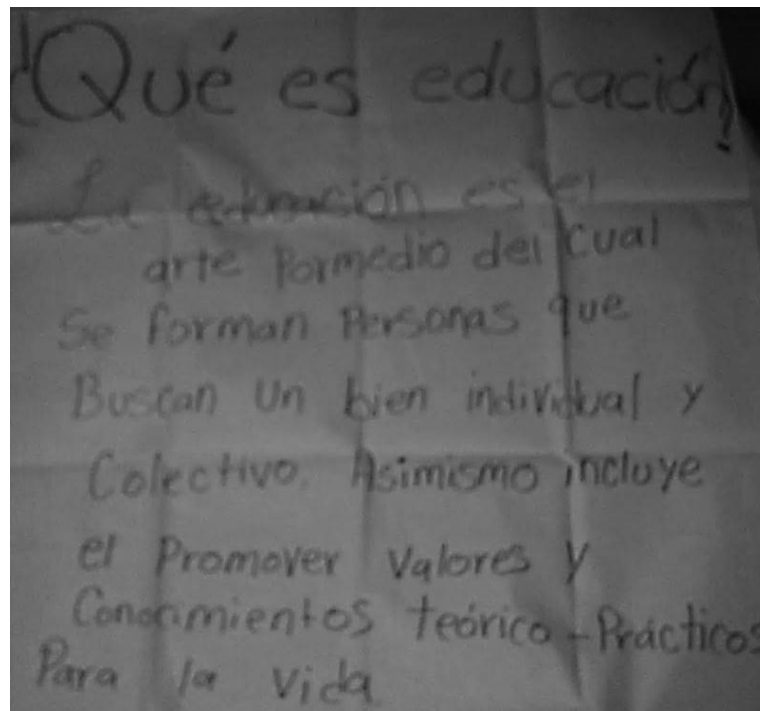 ¿Qué es educación?
La educación es el
arte Pormedio del cual
Se forman Personas que
Buscan un bien individual y
Colectivo. Asimismo incluye
el Promover Valores y
Conocimientos teórico-Prácticos
Para la vida